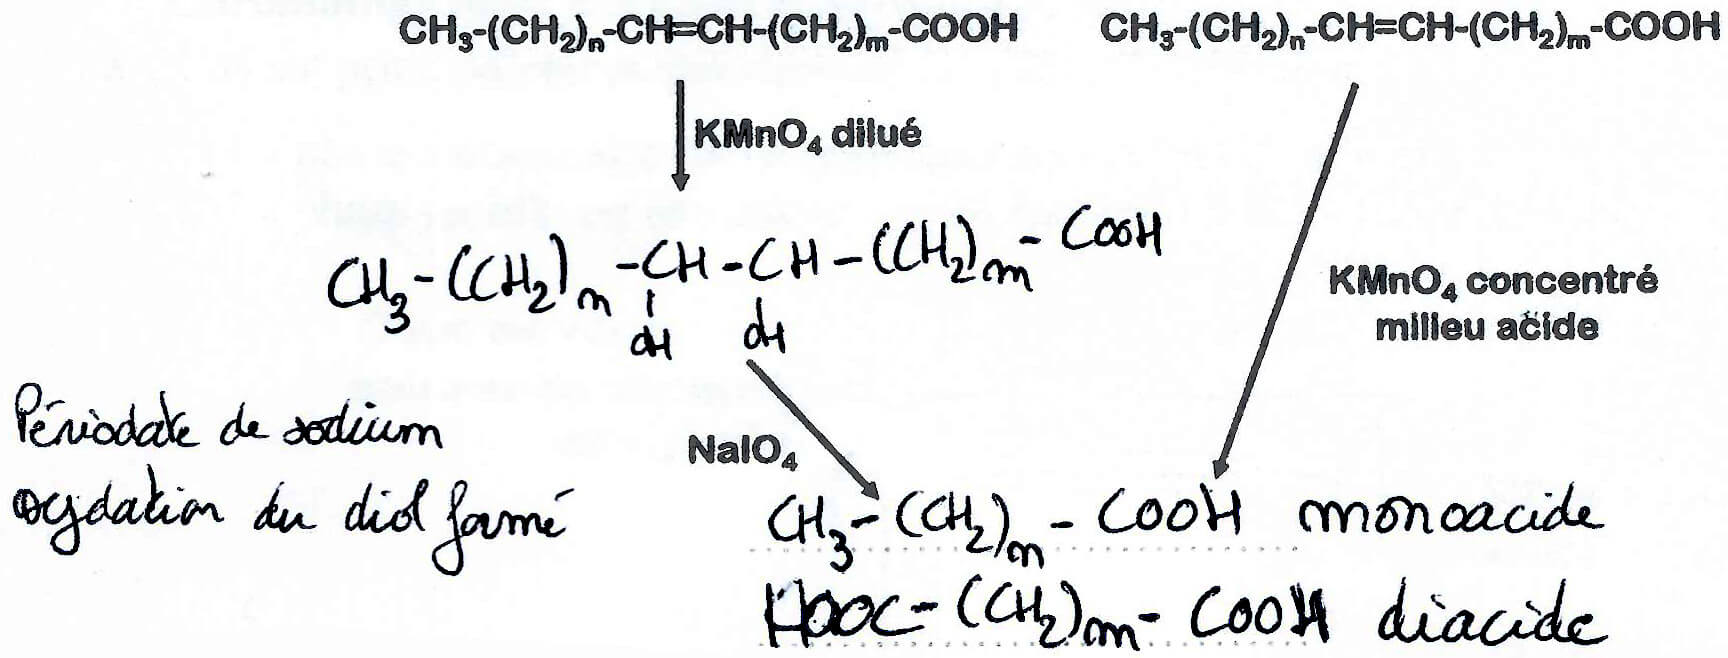 CH₃-(CH₂)ₙ-CH=CH-(CH₂)ₘ-COOH CH₃-(CH₂)ₙ-CH=CH-(CH₂)ₘ-COOH
KMnO₄ dilué
CH₃-(CH₂)ₙ-CH-CH-(CH₂)ₘ-COOH
OH OH
KMnO₄ concentré
milieu acide
Périodate de sodium
oxydation du diol formé
NaIO₄
CH₃-(CH₂)ₙ-COOH monoacide
HOOC-(CH₂)ₘ-COOH diacide